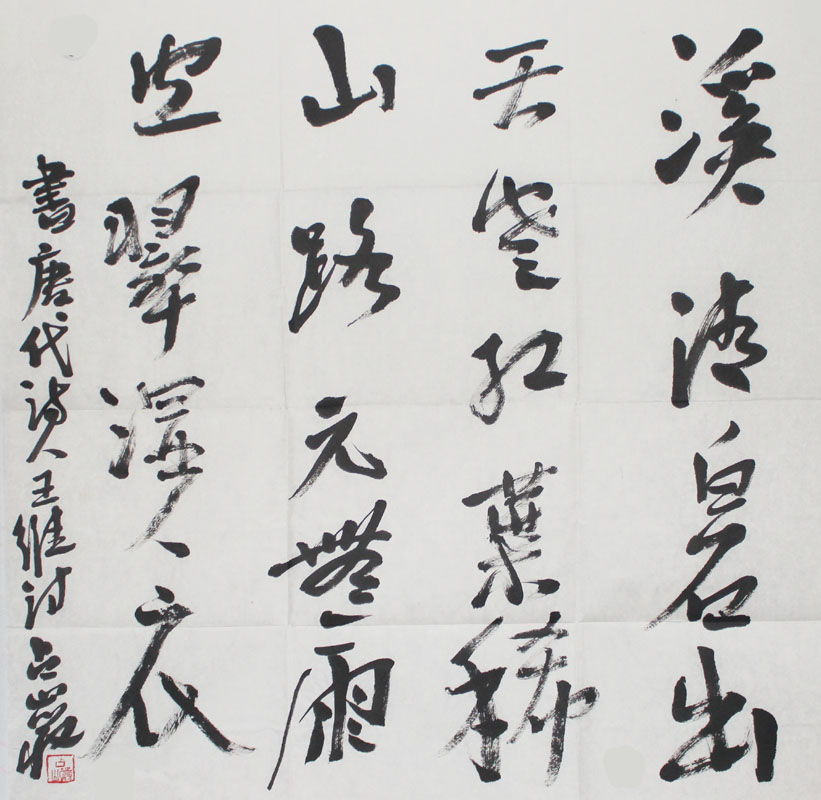 溪清白石出
天寒红葉稀
山路元無雨
空翠湿人衣
書唐代诗人王維诗